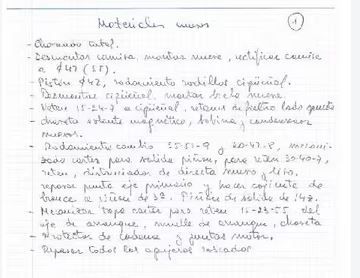 Materiales nuevos
①
- Chorreado total.
- Desmontar camisa, montar nueva, rectificar camisa
a $42 (ST).
- Pistón $42, rodamiento rodillos cigüeñal.
- Desmontar cigüeñal, montar biela nueva.
- Reten 15-24-7 a cigüeñal, retenes de fieltro lado
- chaveta volante magnético, bobina y condensador
nuevos.
- Rodamiento cambio 35-51-9 y 20-47-8,
cartes para salida piñon, para reten 30-40-7,
reten, distanciador de directa nuevo y
reparar punta eje primario y hacer cojinete de
bronce a piñon de 3ª. Piñon de salida de 14z.
- Mecanizar tapa carter para reten 16-23-55 del
eje de arranque, muelle de arranque, chaveta
- Protector de cadena y juntas motor.
- Reparar todos los agujeros roscados